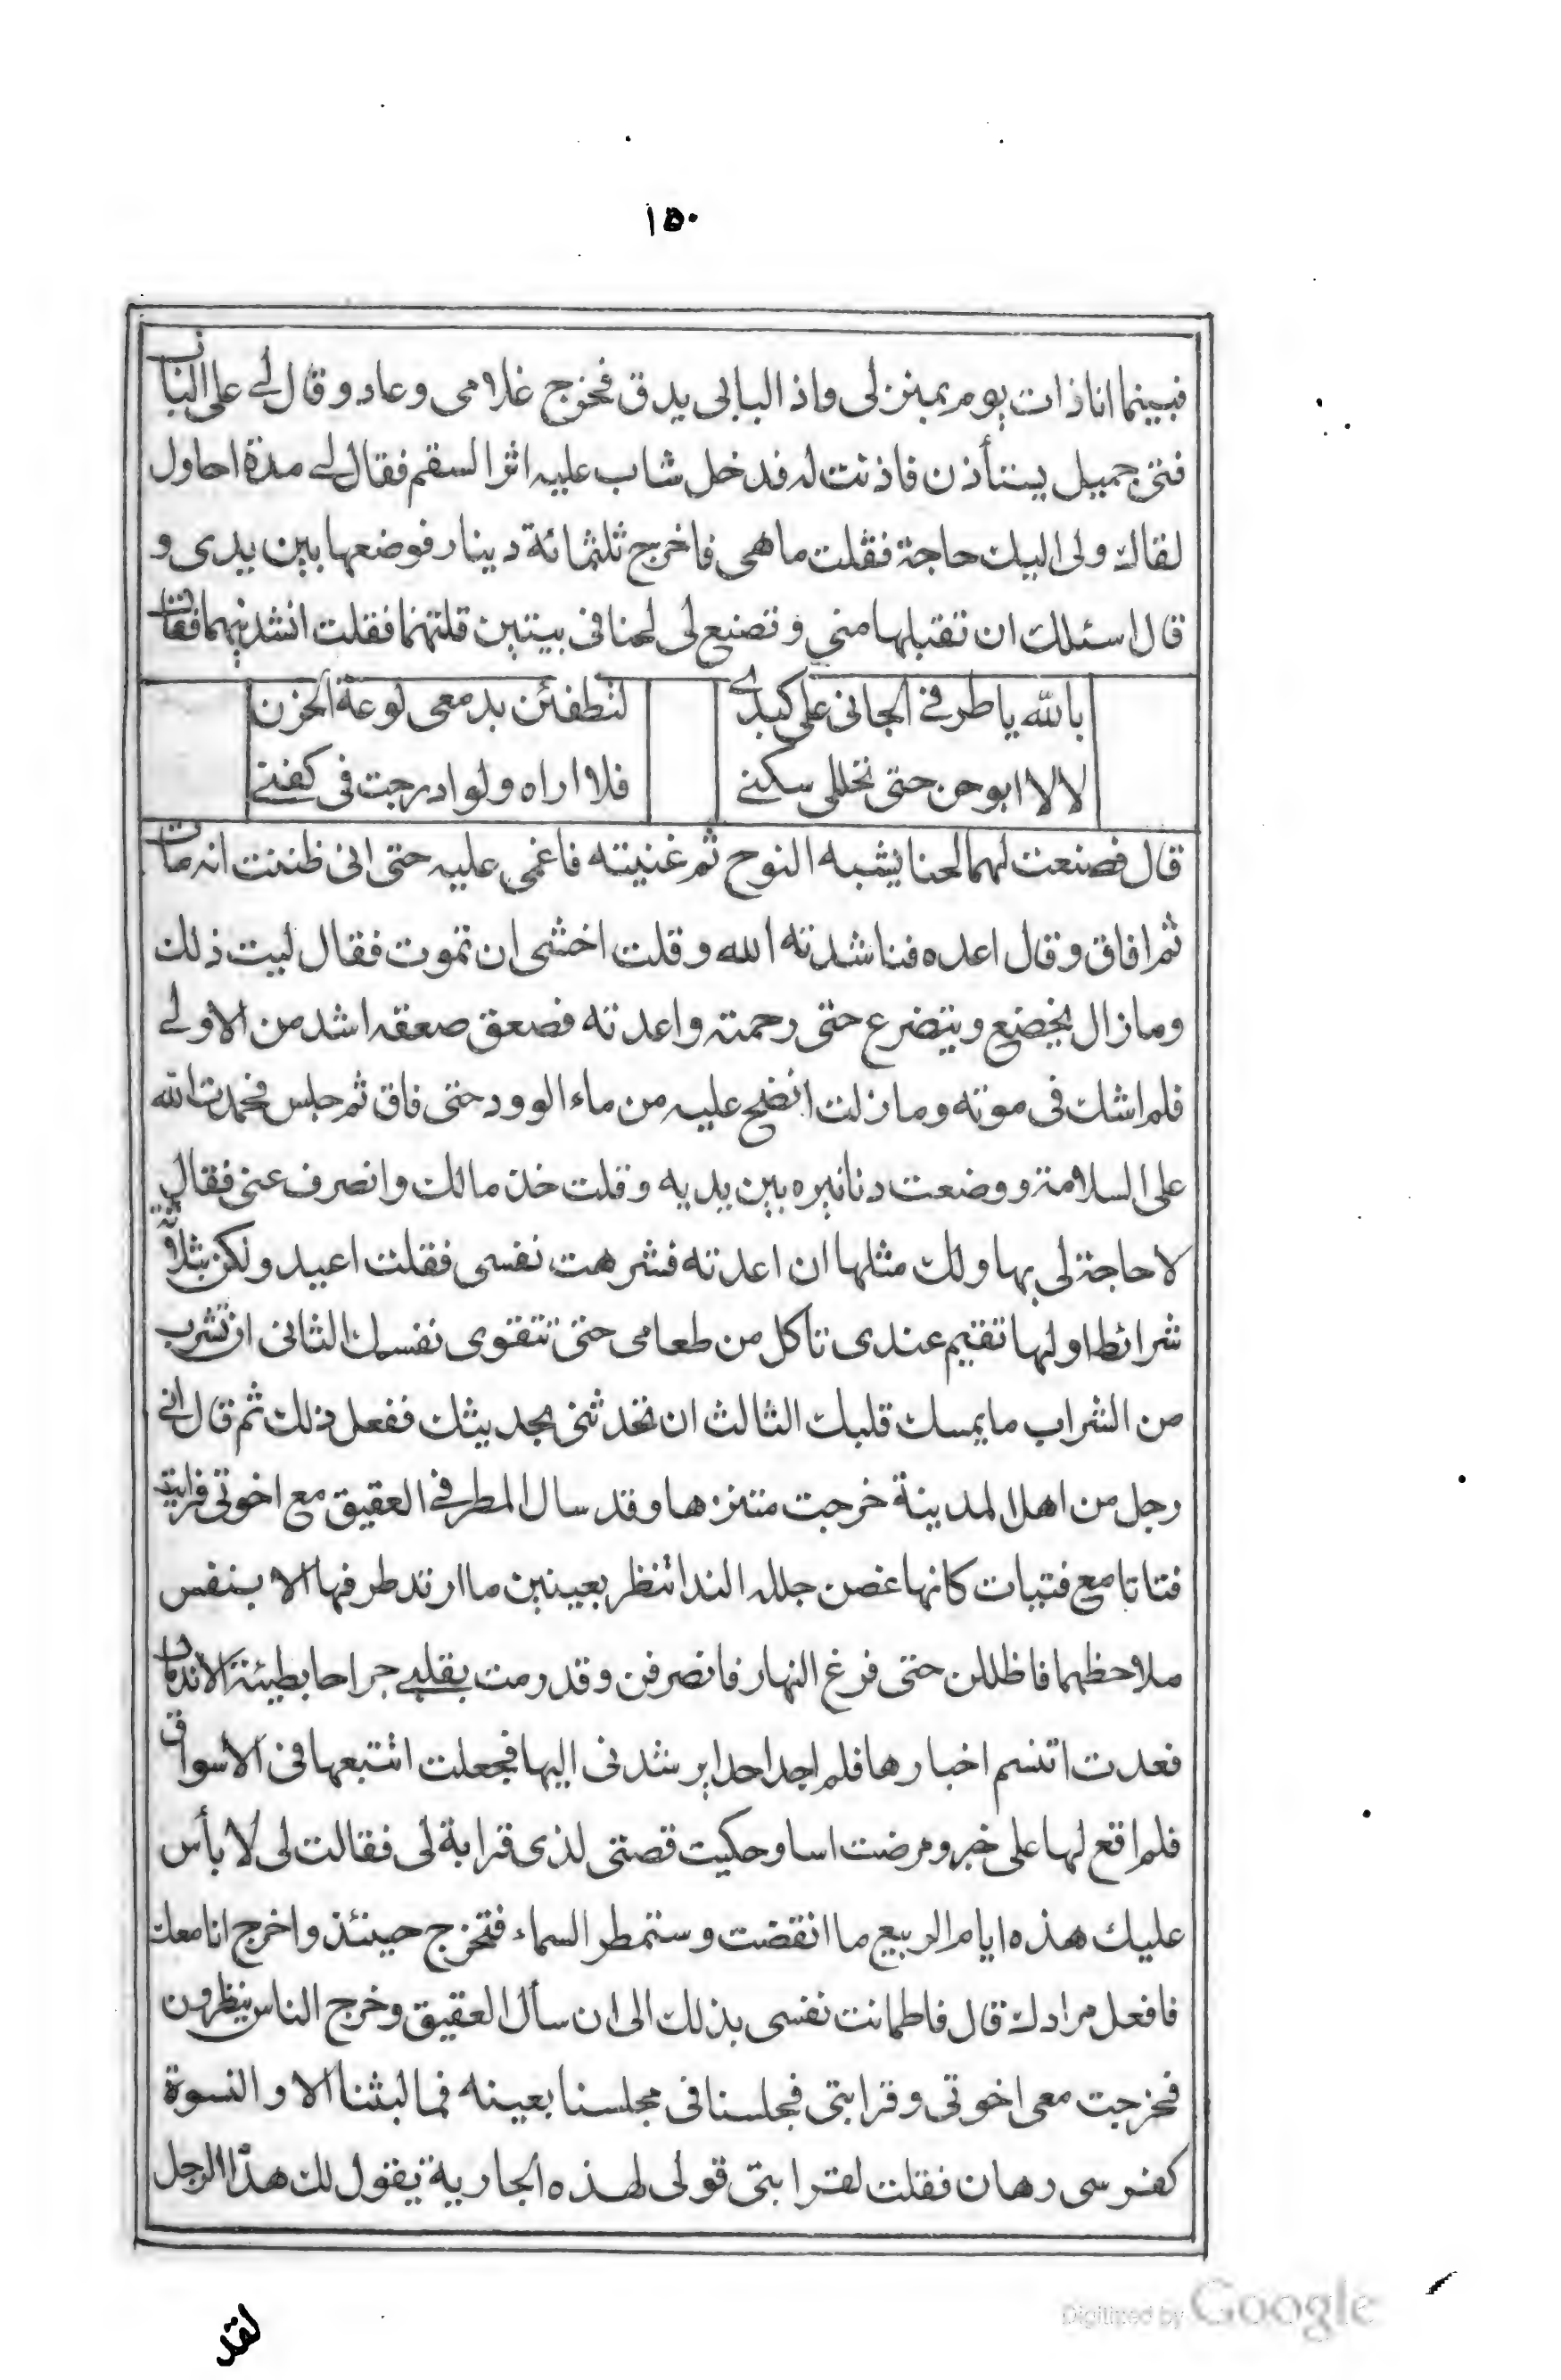 ١٥٠
فبينما انا ذات يوم بمنزلى واذ البابى يدق فخرج غلامى وعاد وقال لے على الباب
فتى جميل يستأذن فاذنت له فدخل شاب عليه اثر السقم فقال لے مدة احاول
لقاك ولى اليك حاجة فقلت ما هى فاخرج ثلثمائة دينار فوضعها بين يدى و
قال اسئلك ان تقبلها منى وتصنع لى لحنا فى بيتين قلتهما فقلت انشدنيهما فقال
بالله يا طرفے الجانى على كبدے لتطفئن بدمعى لوعة الحزن
لا لا ابوحن حتى تخللى سكنے فلا اراه ولو ادرجت فى كفنے
قال فصنعت لهما لحنا يشبه النوح ثم غنيته فاغمى عليه حتى انى ظننت انه مات
ثم افاق وقال اعده فناشدته الله وقلت اخشى ان تموت فقال ليت ذلك
وما زال يخضع ويتضرع حتى رحمته واعدته فصعق صعقه اشد من الاولے
فلم اشك فى موته وما زلت انضح عليه من ماء الوود حتى فاق ثم جلس فحمدت الله
على السلامة ووضعت دنانيره بين يديه وقلت خذ مالك وانصرف عنى فقال
لا حاجة لى بها ولك مثلها ان اعدته فشرهت نفسى فقلت اعيد ولكن بثلاثة
شرائط اولها تقيم عندى تاكل من طعامى حتى تتقوى نفسك الثانى ان تشرب
من الشراب ما يمسك قلبك الثالث ان تحدثنى بحديثك ففعل ذلك ثم قال انے
رجل من اهل المدينة خرجت متنزها وقد سال المطر فے العقيق مع اخوتى فرايت
فتاتا مع فتيات كانها غصن جلله الندا تنظر بعينين ما ارتد طرفها الا بنفس
ملاحظهما فاظللن حتى فرغ النهار فانصرفن وقد رمت بقلبے جراحا بطيئة الاندمال
فعدت اتنسم اخبارها فلم اجد احدا يرشدنى اليها فجعلت اتتبعها فى الاسواق
فلم اقع لها على خبر ومرضت اسا وحكيت قصتى لذى قرابة لى فقالت لى لا بأس
عليك هذه ايام الربيع ما انقضت وستمطر السماء فتخرج حينئذ واخرج انا معك
فافعل مرادك قال فاطمانت نفسى بذلك الى ان سأل العقيق وخرج الناس ينظرون
فخرجت معى اخوتى وقرابتى فجلسنا فى مجلسنا بعينه فما لبثنا الا والنسوة
كفرسى رهان فقلت لقرابتى قولى لهذه الجارية يقول لك هذا الرجل
لقد
Digitized by Google